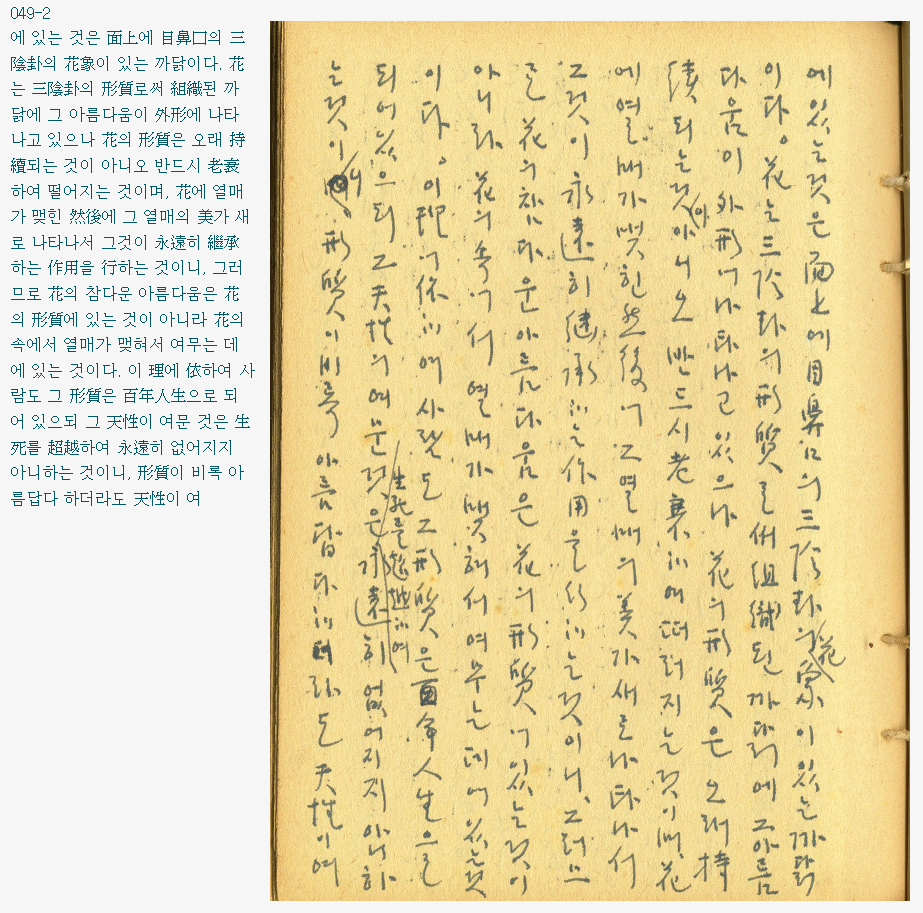 049-2
에 있는 것은 面上에 目鼻口의 三
陰卦의 花象이 있는 까닭이다. 花
는 三陰卦의 形質로써 組織된 까
닭에 그 아름다움이 外形에 나타
나고 있으나 花의 形質은 오래 持
續되는 것이 아니오 반드시 老衰
하여 떨어지는 것이며, 花에 열매
가 맺힌 然後에 그 열매의 美가 새
로 나타나서 그것이 永遠히 繼承
하는 作用을 行하는 것이니, 그러
므로 花의 참다운 아름다움은 花
의 形質에 있는 것이 아니라 花의
속에서 열매가 맺혀서 여무는 데
에 있는 것이다. 이 理에 依하여 사
람도 그 形質은 百年人生으로 되
어 있으되 그 天性이 여문 것은 生
死를 超越하여 永遠히 없어지지
아니하는 것이니, 形質이 비록 아
름답다 하더라도 天性이 여
에 있는 것은 面上에 目鼻口의 三陰卦의 花象이 있는 까닭
이다。花는 三陰卦의 形質로써 組織된 까닭에 그 아름
다움이 外形에 나타나고 있으나 花의 形質은 오래 持
續되는 것이 아니오 반드시 老衰하여 떠러지는 것이며, 花
에 열매가 맺힌 然後에 그 열매의 美가 새로 나타나서
그것이 永遠히 継承하는 作用을 行하는 것이니, 그러므
로 花의 참다운 아름다움은 花의 形質에 있는 것이
아니라 花의 속에서 열매가 맺혀서 여무는 데에 있는 것
이다。이 理에 依하여 사람도 그 形質은 百年人生으로
되어 있으되 그 天性의 여문 것은 生死를 超越하여 永遠히 없어지지 아니하
는 것이니, 形質이 비록 아름답다 하더라도 天性이 여